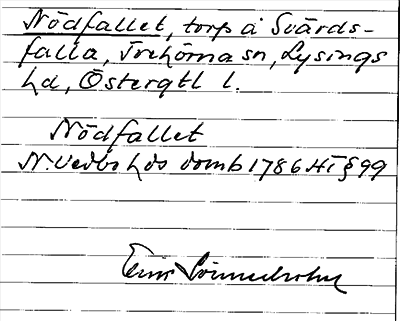 Nödfallet, torp å Svärds-
falla, Trehörna sn, Lysings
hd, Östergtl l.
Nödfallet
N. Vedbo hds domb 1786 HT § 99